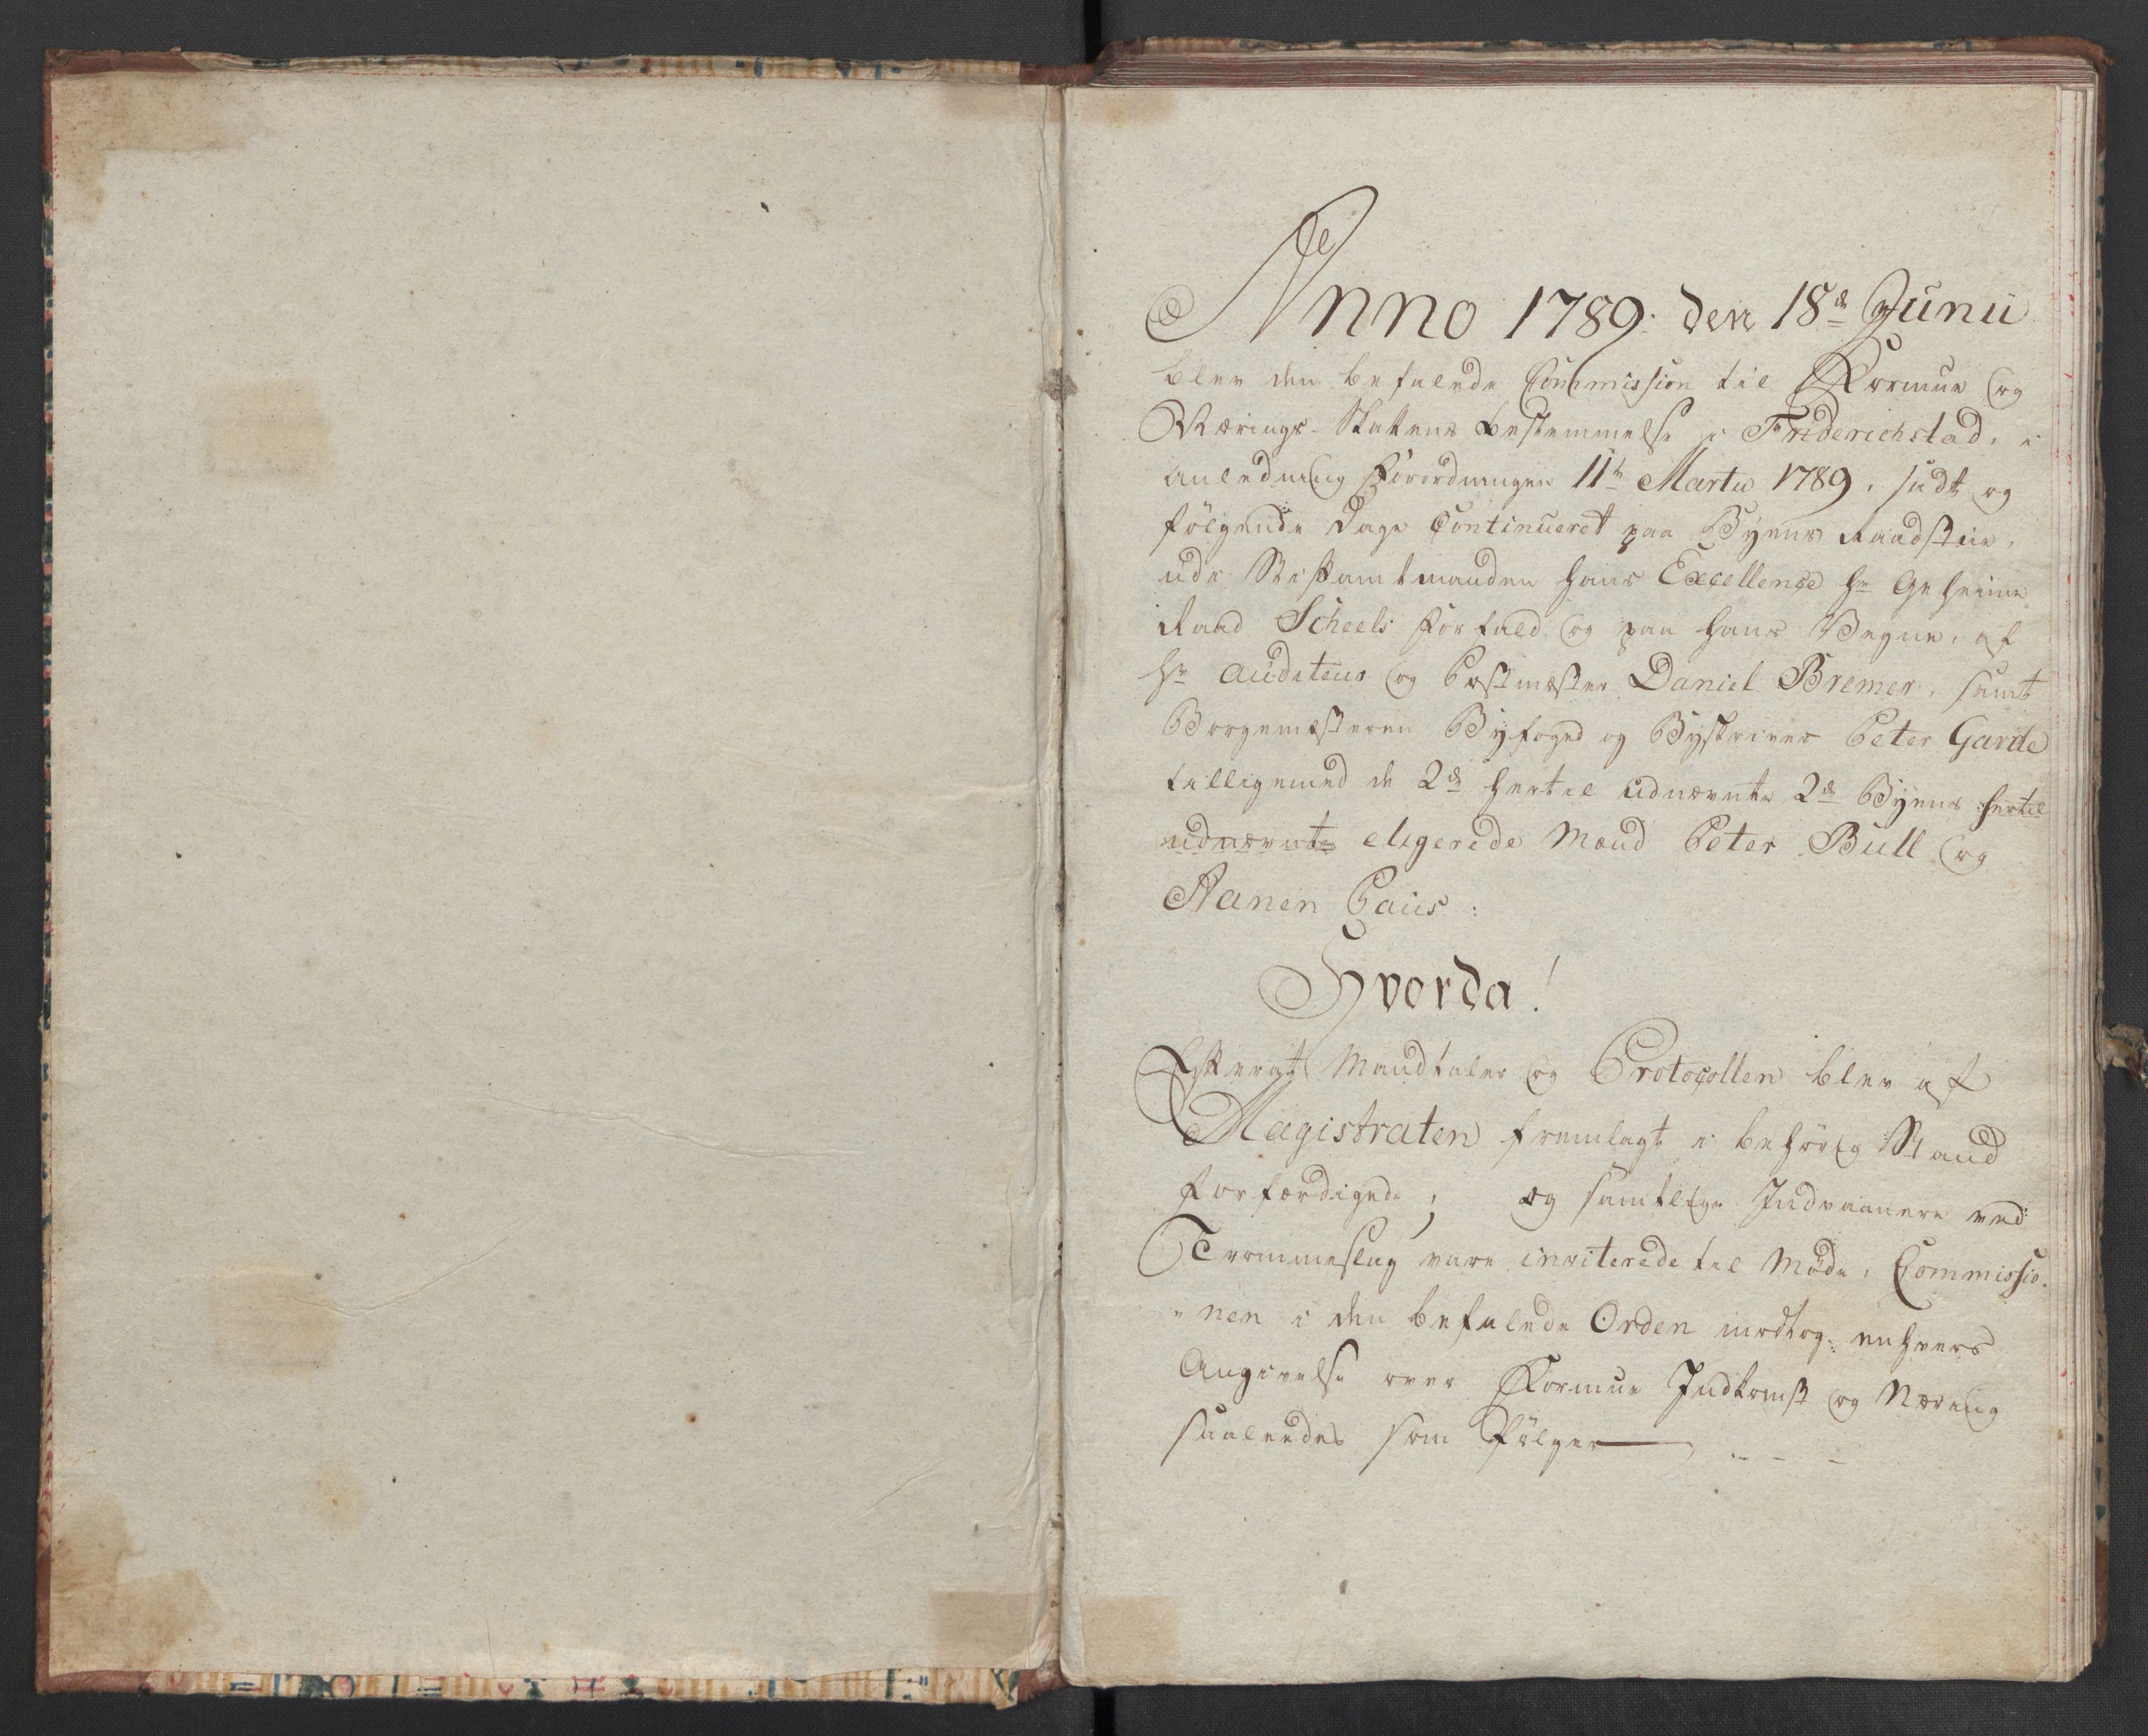 Anno 1789. den 18de Junii
blev den befalede Commission til Formue og
Nærings-Skattens Bestemmelse i Friderichstad, i
anledning Forordningen 11te Martii 1789, sadt og
følgende Dage Continueret paa Byens Raadstue,
udi Stiftamtmanden Hans Excellence Hr Geheime
Raad Scheels Forfald og paa Hans Vegne, af
Hr Auditeur og Postmester Daniel Bremer, samt
Borgemesteren Byfoged og Byskriver Peter Garde
tilligemed de 2de hertil udnævnte 2de Byens hertil
udnævnte eligerede Mænd Peter Bull og
Aanen Paus:
Hvorda!
Efterat Mandtaler og Protocollen blev af
Magistraten fremlagt i behørig Stand
forfærdigede; og samtlige Indvaanere ved
Trommeslag vare inviterede til Møde, Commissio-
nen i den befalede Orden modtog enhvers
Angivelse over Formue Indkomst og Næring
saaledes som Følger